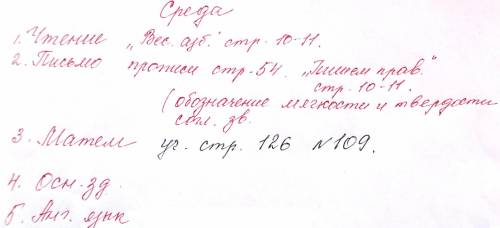 Среда
1. Чтение „Вес. азб." стр. 10-11.
2. Письмо прописи стр. 54. „Пишем прав."
стр. 10-11.
(обозначение мягкости и твердости
согл. зв.
3. Матем уч. стр. 126 №109.
4. Осн. зд.
5. Анг. язык